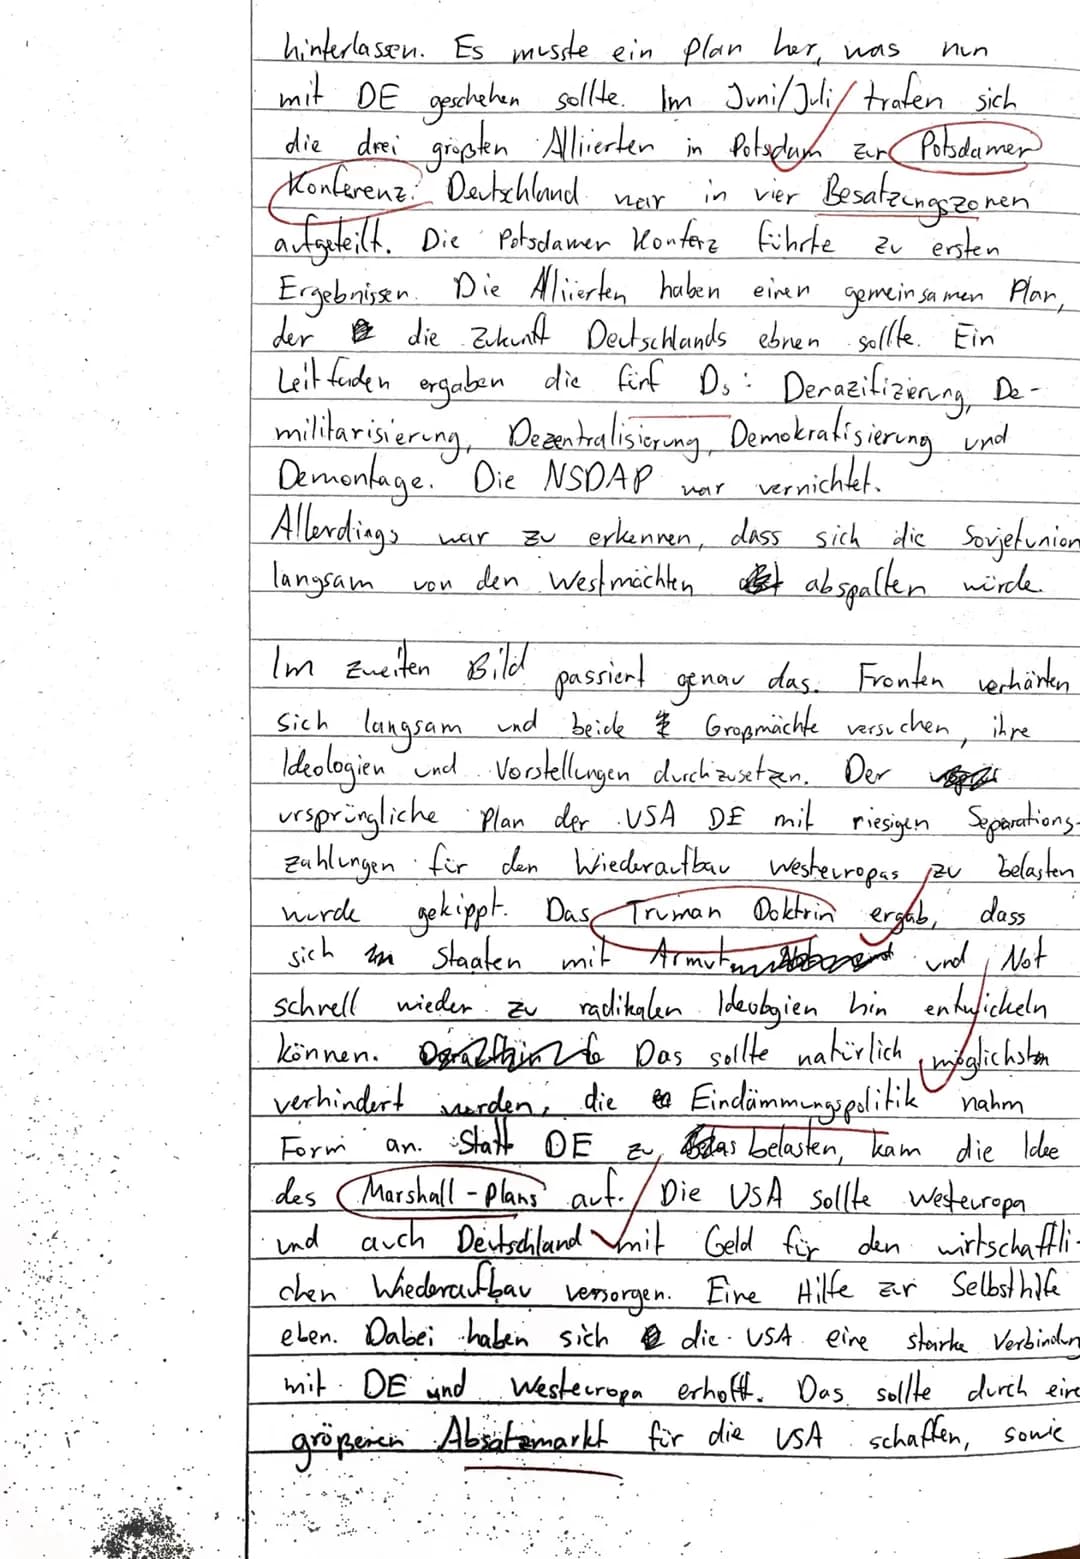 hinterlassen. Es musste ein Plan her, was nun
mit DE geschehen sollte. Im Juni/Juli trafen sich
die drei größten Alliierten in Potsdam zur Potsdamer
Konferenz. Deutschland war in vier Besatzungszonen
aufgeteilt. Die Potsdamer Konferz führte zu ersten
Ergebnissen. Die Alliierten haben einen gemeinsamen Plan,
der die Zukunft Deutschlands ebnen sollte. Ein
Leitfaden ergaben die fünf Ds: Denazifizierung, De-
militarisierung, Dezentralisierung, Demokratisierung und
Demontage. Die NSDAP war vernichtet.
Allerdings war zu erkennen, dass sich die Sovjetunion
langsam von den Westmächten abspalten würde.
Im zweiten Bild passiert genau das. Fronten verhärten
sich langsam und beide Großmächte versuchen, ihre
Ideologien und Vorstellungen durchzusetzen. Der
ursprüngliche Plan der USA DE mit riesigen Separations-
zahlungen für den Wiederaufbau Westeuropas zu belasten
wurde gekippt. Das Truman Doktrin ergab, dass
sich in Staaten mit Armut und Not
schnell wieder zu radikalen Ideologien hin entwickeln
können. Das sollte natürlich möglichsten
verhindert werden, die Eindämmungspolitik nahm
Form an. Statt DE zu belasten, kam die Idee
des Marshall-Plans auf. Die USA sollte Westeuropa
und auch Deutschland mit Geld für den wirtschaftli-
chen Wiederaufbau versorgen. Eine Hilfe zur Selbsthilfe
eben. Dabei haben sich die USA eine starke Verbindun
mit DE und Westeuropa erhofft. Das sollte durch eine
größeren Absatzmarkt für die USA schaffen, sowie